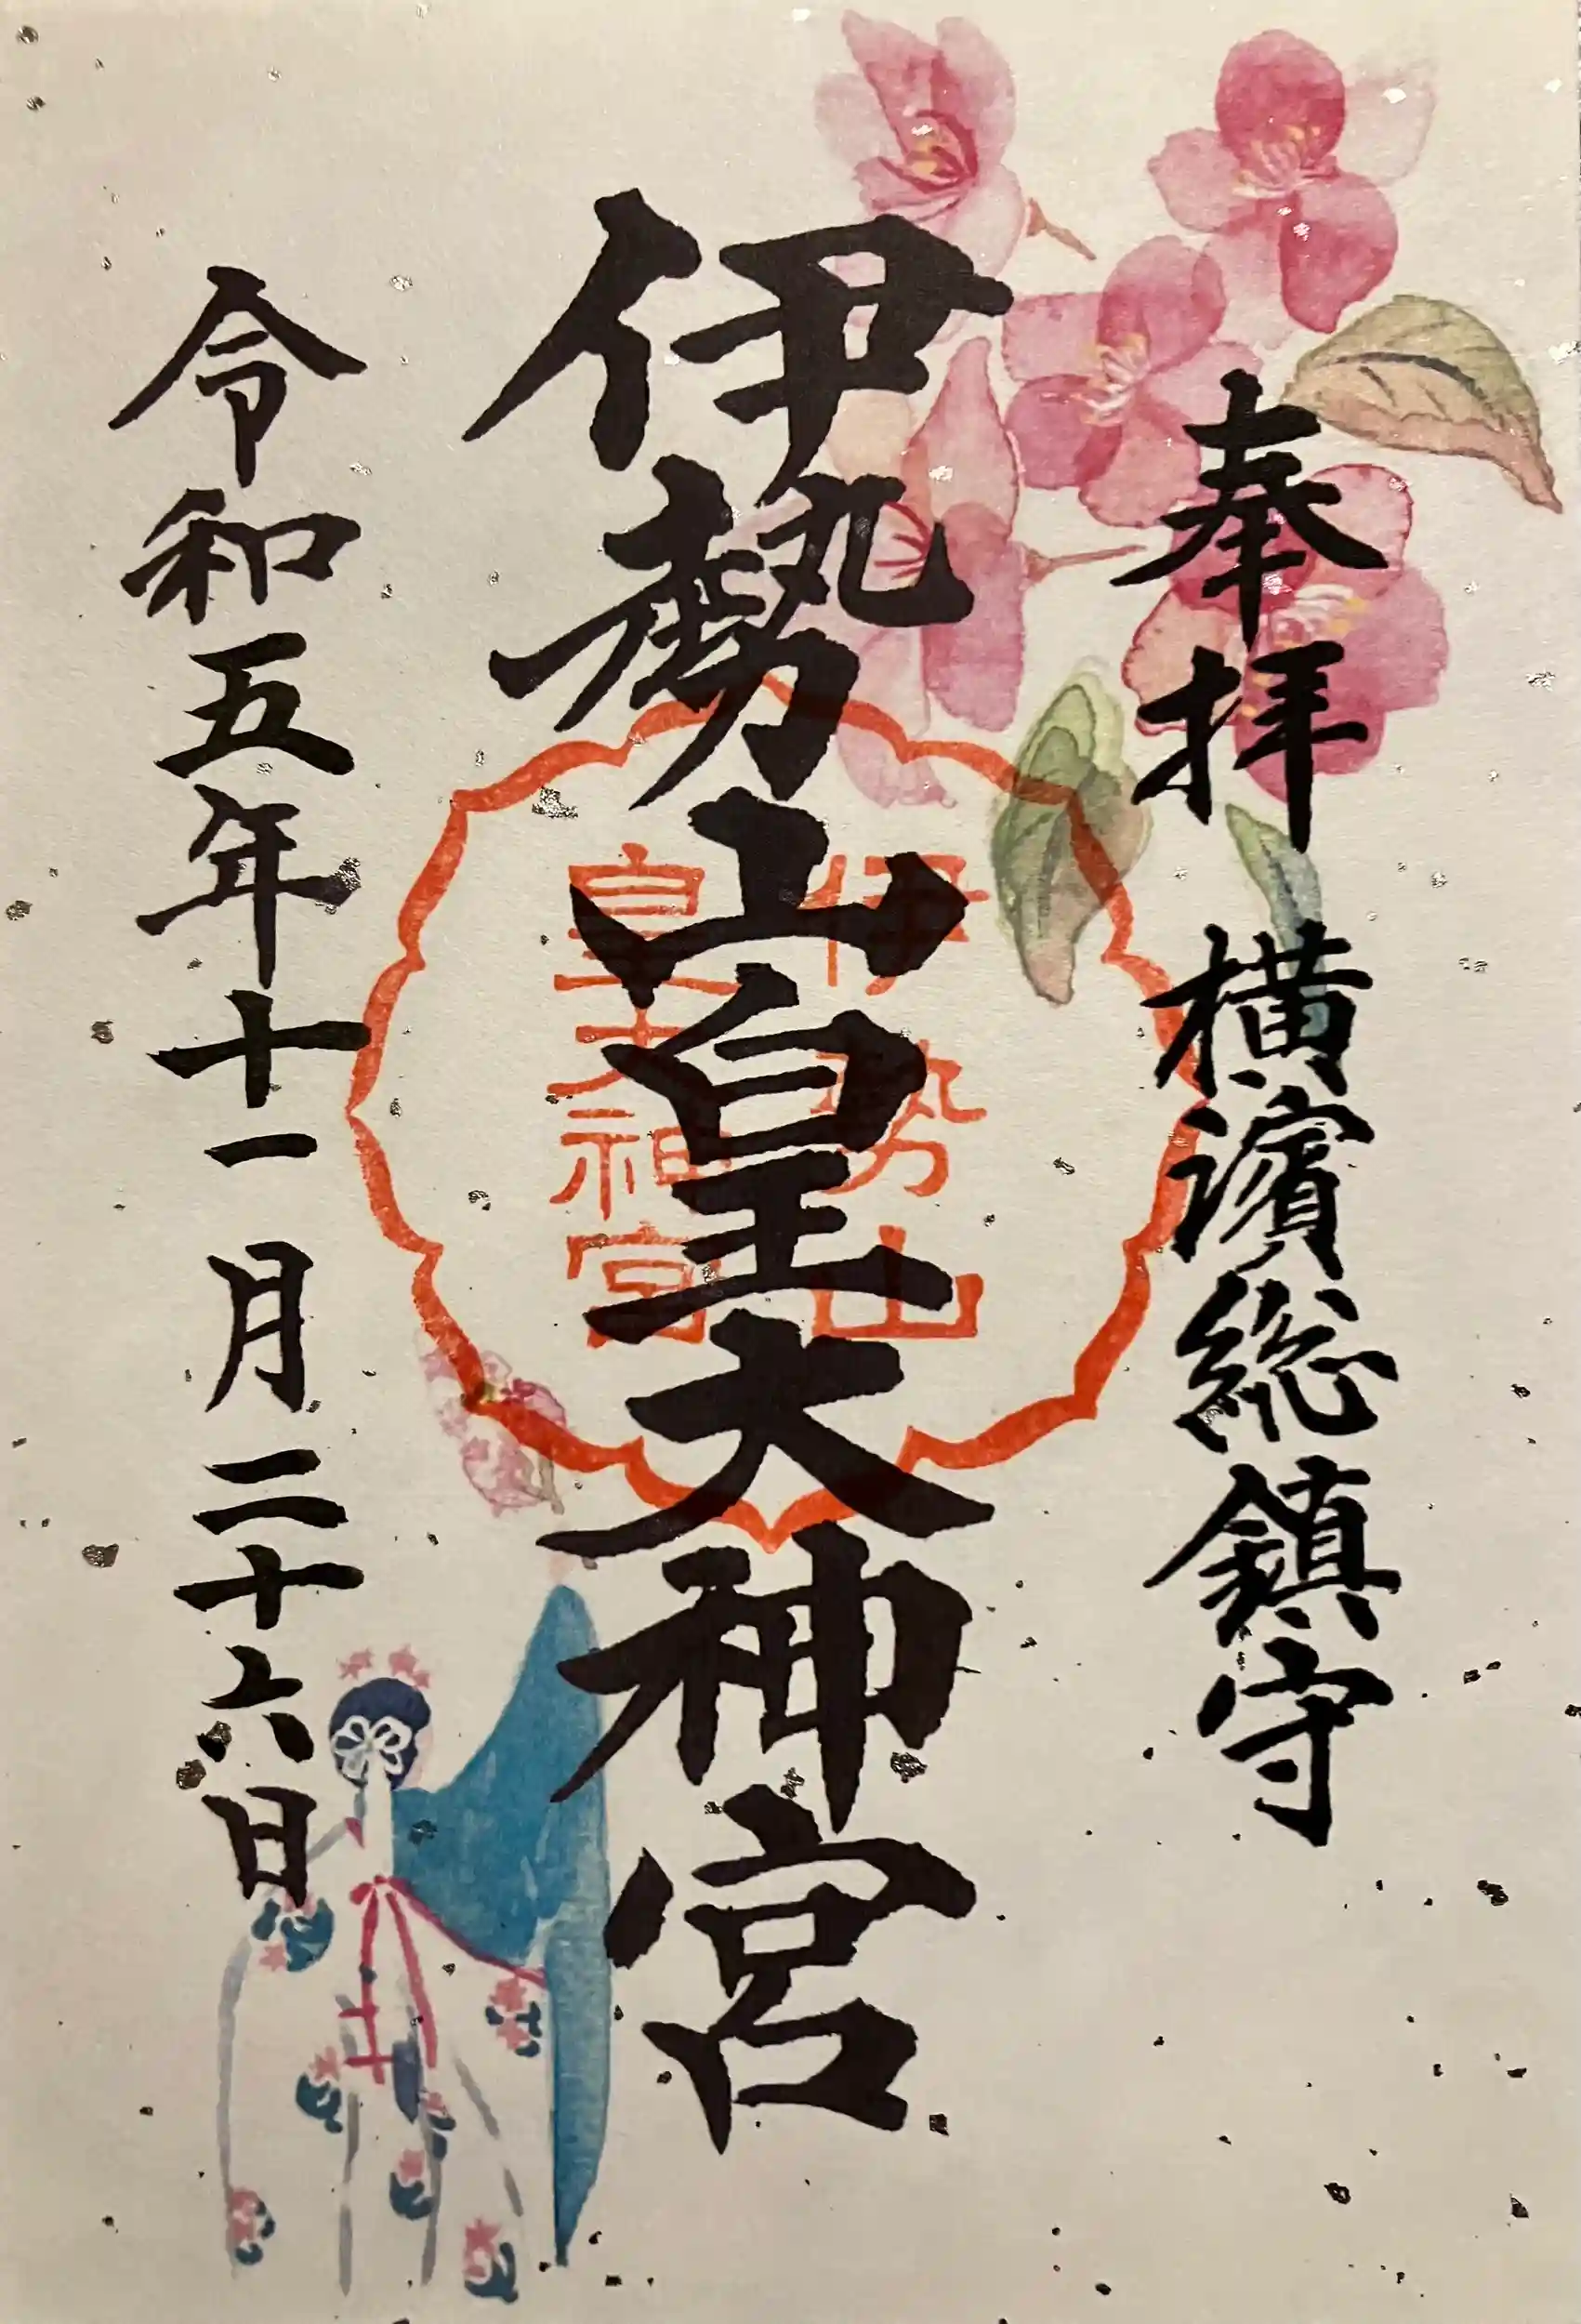 奉拝 横濱総鎮守
伊勢山皇大神宮
伊勢山
皇大神宮
令和五年十一月二十六日